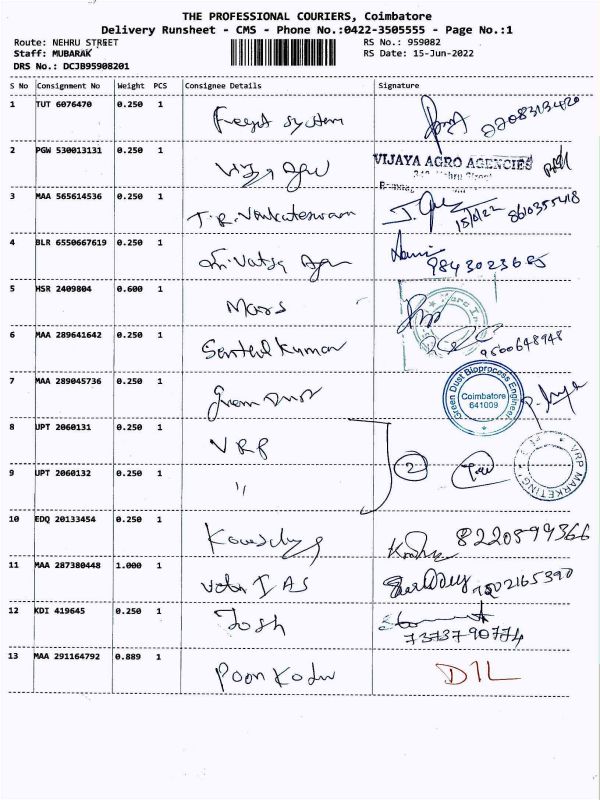 THE PROFESSIONAL COURIERS, Coimbatore
Delivery Runsheet - CMS - Phone No.:0422-3505555 - Page No.:1
Route: NEHRU STREET RS No.: 959082
Staff: MUBARAK RS Date: 15-Jun-2022
DRS No.: DCJB95908201
S No Consignment No Weight PCS Consignee Details Signature
1 TUT 6076470 0.250 1 System
2 PGW 530013131 0.250 1 VIJAYA AGRO AGENCIES
Nehru Street
3 MAA 565614536 0.250 1 T.R. Venkateswaran 15/6/22 8610355418
4 BLR 6550667619 0.250 1 9843023685
5 HSR 2409804 0.600 1 Mars
6 MAA 289641642 0.250 1 Senthil Kumar 9500648948
7 MAA 289045736 0.250 1 Green Dust Green Dust Bioprocess Engineer
Coimbatore
641009
8 UPT 2060131 0.250 1 VRP 2 VRP MARKETING
9 UPT 2060132 0.250 1 "
10 EDQ 20133454 0.250 1 8220599366
11 MAA 287380448 1.000 1 IAS
12 KDI 419645 0.250 1 Josh 7373790774
13 MAA 291164792 0.889 1 Poon Kodi DIL